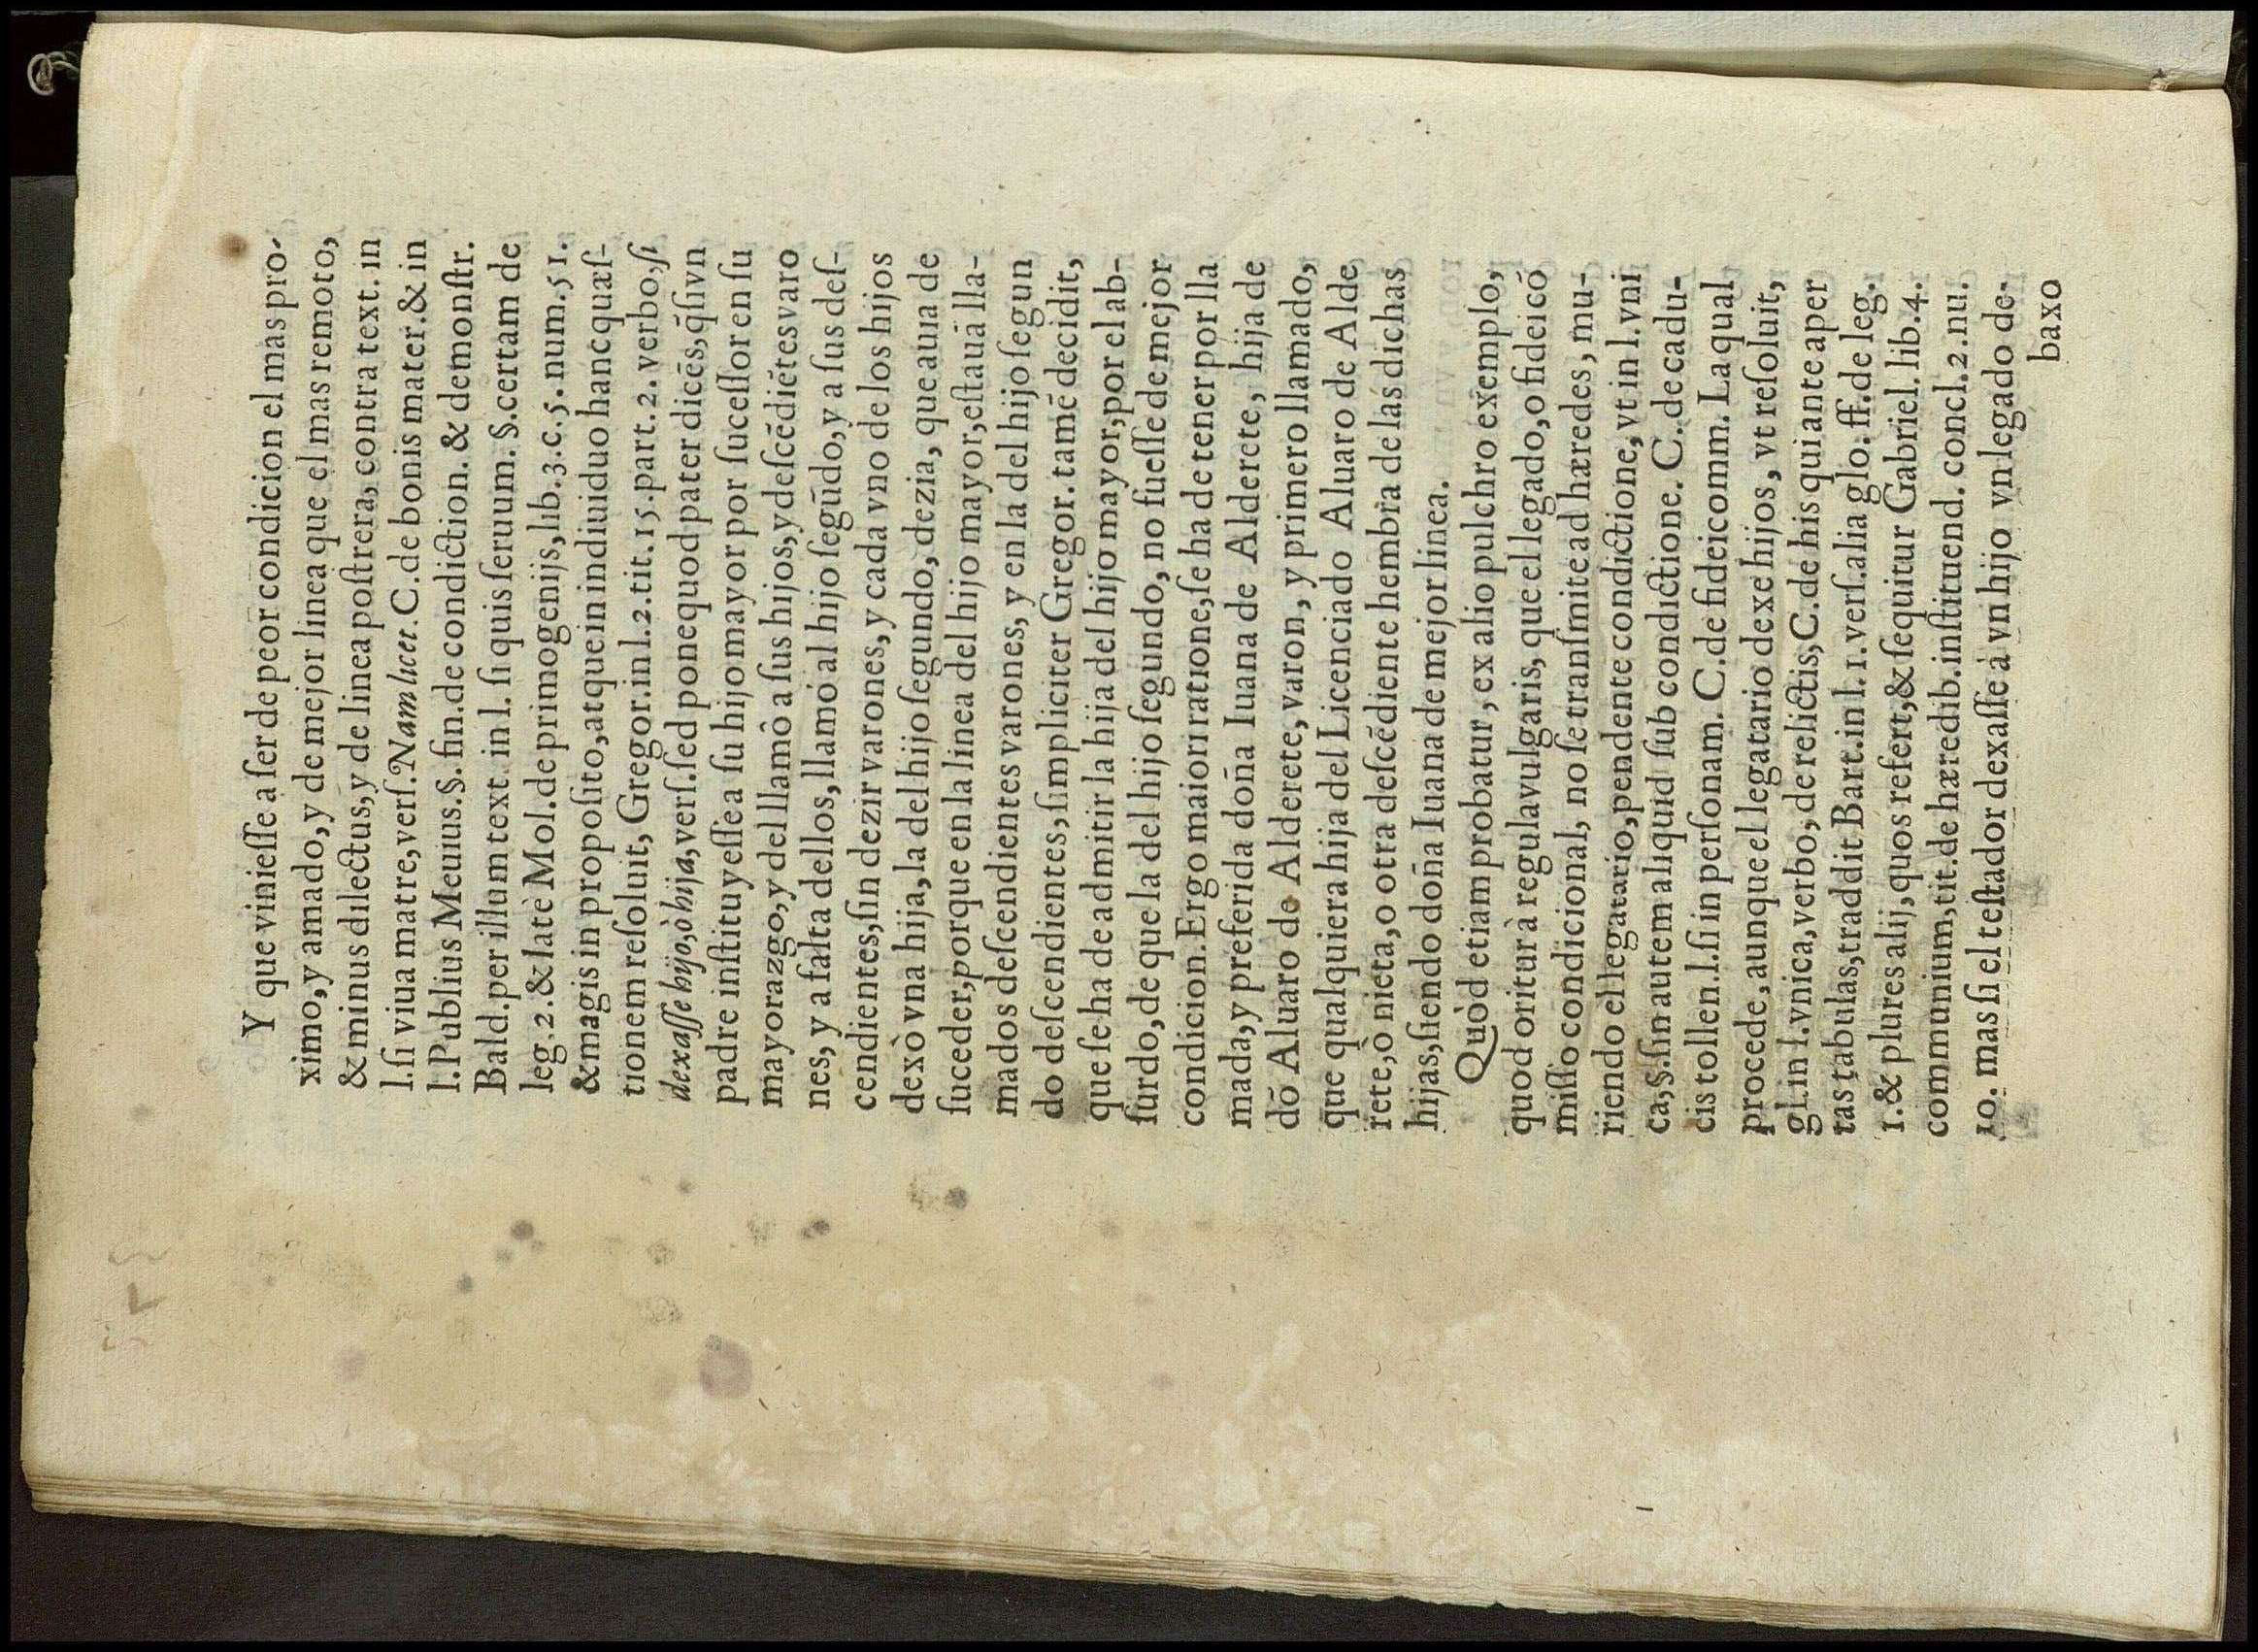 Y que vinieſſe a ſer de peor condicion el mas pro-
ximo, y amado, y de mejor linea que el mas remoto,
& minus dilectus, y de linea poſtrera, contra text. in
l. ſi viua matre, verſ. Nam licet. C. de bonis mater. & in
l. Publius Meuius. §. fin. de condiction. & demonſtr.
Bald. per illum text. in l. ſi quis ſeruum. §. certam de
leg. 2. & latè Mol. de primogenijs, lib. 3. c. 5. num. 51.
& magis in propoſito, atque in indiuiduo hanc quæſ-
tionem reſoluit, Gregor. in l. 2. tit. 15. part. 2. verbo, ſi
dexaſſe hijo, ò hija, verſ. ſed pone quod pater dicēs, q̄ ſi vn
padre inſtituyeſſe a ſu hijo mayor por ſuceſſor en ſu
mayorazgo, y del llamô a ſus hijos, y deſcēdiētes varo
nes, y a falta dellos, llamó al hijo ſegūdo, y a ſus deſ-
cendientes, ſin dezir varones, y cada vno de los hijos
dexò vna hija, la del hijo ſegundo, dezia, que auia de
ſuceder, porque en la linea del hijo mayor, eſtauā lla-
mados deſcendientes varones, y en la del hijo ſegun
do deſcendientes, ſimpliciter Gregor. tamē decidit,
que ſe ha de admitir la hija del hijo mayor, por el ab-
ſurdo, de que la del hijo ſegundo, no fueſſe de mejor
condicion. Ergo maiori ratione, ſe ha de tener por lla
mada, y preferida doña Iuana de Alderete, hija de
dō Aluaro de Alderete, varon, y primero llamado,
que qualquiera hija del Licenciado Aluaro de Alde
rete, ò nieta, o otra deſcēdiente hembra de las dichas
hijas, ſiendo doña Iuana de mejor linea.
Quòd etiam probatur, ex alio pulchro exemplo,
quod oritur à regula vulgaris, que el legado, o fideicō
miſſo condicional, no ſe tranſmite ad hæredes, mu-
riendo el legatario, pendente condictione, vt in l. vni
ca, §. ſin autem aliquid ſub condictione. C. de cadu-
cis tollen. l. ſi in perſonam. C. de fideicomm. La qual
procede, aunque el legatario dexe hijos, vt reſoluit,
gl. in l. vnica, verbo, de relictis, C. de his qui ante aper
tas tabulas, traddit Bart. in l. 1. verſ. alia glo. ff. de leg.
1. & plures alij, quos refert, & ſequitur Gabriel. lib. 4.
communium, tit. de hæredib. inſtituend. concl. 2. nu.
10. mas ſi el teſtador dexaſſe à vn hijo vn legado de-
baxo